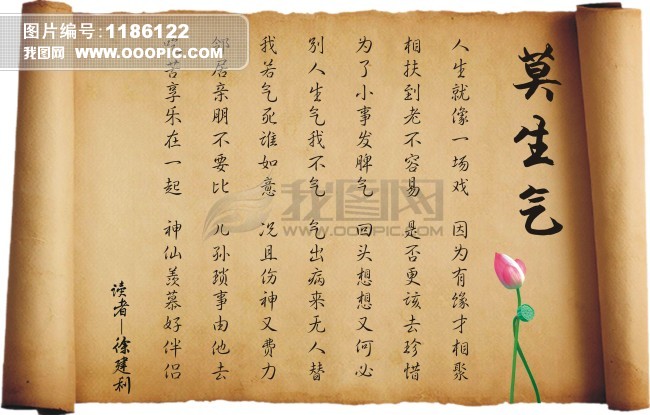 图片编号:1186122
我图网 www.OOOPIC.com
莫生气
人生就像一场戏 因为有缘才相聚
相扶到老不容易 是否更该去珍惜
为了小事发脾气 回头想想又何必
别人生气我不气 气出病来无人替
我若气死谁如意 况且伤神又费力
邻居亲朋不要比 儿孙琐事由他去
苦享乐在一起 神仙羡慕好伴侣
读者—徐建利
我图网
WWW.OOOPIC.COM